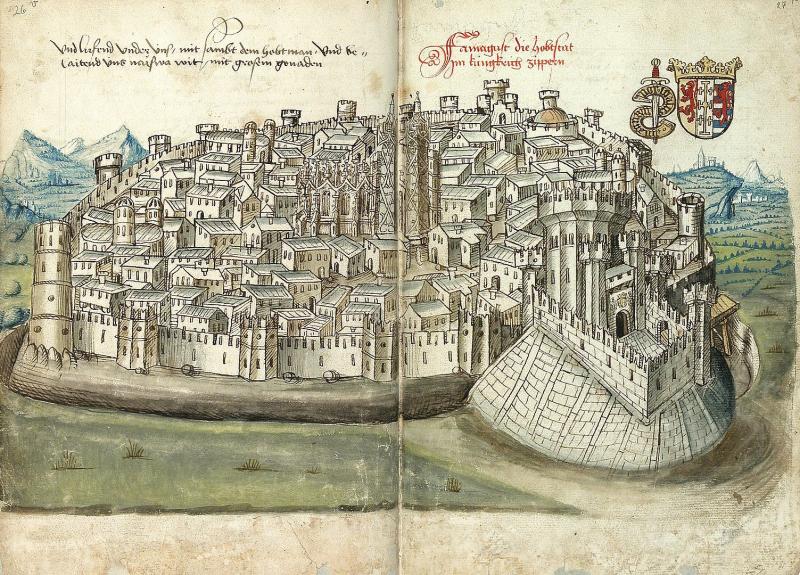 26
27
Und lussend under uns, mit sambt dem hobtman, Und be=
laitend uns
wit, mit grosem genaden
Famagust die hobtstat
Im kungkrich zippern